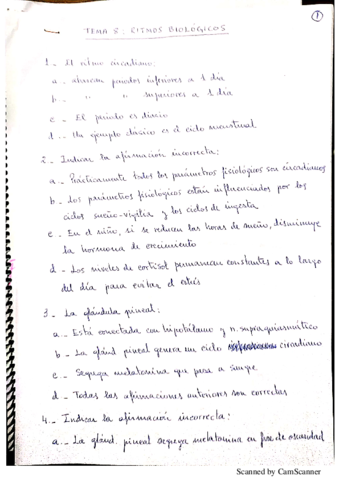 1
TEMA 5: RITMOS BIOLÓGICOS
1.- El ritmo circadiano:
a.- abarcan periodos inferiores a 1 día
b.- " " superiores a 1 día
c.- El periodo es diario
d.- Un ejemplo clásico es el ciclo menstrual
2.- Indicar la afirmación incorrecta:
a.- Prácticamente todos los parámetros fisiológicos son circadianos
b.- Los parámetros fisiológicos están influenciados por los
ciclos sueño-vigilia y los ciclos de ingesta
c.- En el niño, si se reducen las horas de sueño, disminuye
la hormona de crecimiento
d.- Los niveles de cortisol permanecen constantes a lo largo
del día para evitar el estrés
3.- La glándula pineal:
a.- Está conectada con hipotálamo y n. supraquiasmático
b.- La gland pineal genera un ciclo circadiano
c.- Segrega melatonina que pasa a sangre
d.- Todas las afirmaciones anteriores son correctas
4.- Indicar la afirmación incorrecta:
a.- La gland. pineal segrega melatonina en fase de oscuridad
Scanned by CamScanner